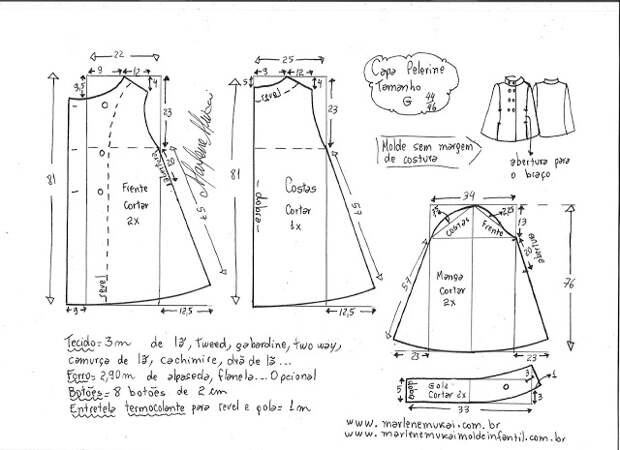 22
9
13
3,5
4
23
81
revel
Frente
Cortar
2x
abertura
20
57
Marlene Mukai
3
12,5
25
9
12
5
4
revel
23
81
dobra
Costas
Cortar
1x
57
12,5
Capa Pelerine
Tamanho
G 44/46
Molde sem margem
de costura
abertura para
o braço
34
costas
frente
13
abertura
20
57
76
Manga
Cortar
2x
23
23
5
Gola
Cortar 2x
3
1
3
33
Tecido = 3m de lã, tweed, gabardine, two way,
camurça de lã, cachimire, drã de lã...
Forro = 2,90m de alpaseda, flanela... Opcional
Botões = 8 botões de 2 cm
Entretela termocolante para revel e gola = 1m
www.marlenemukai.com.br
www.marlenemukaimoldeinfantil.com.br